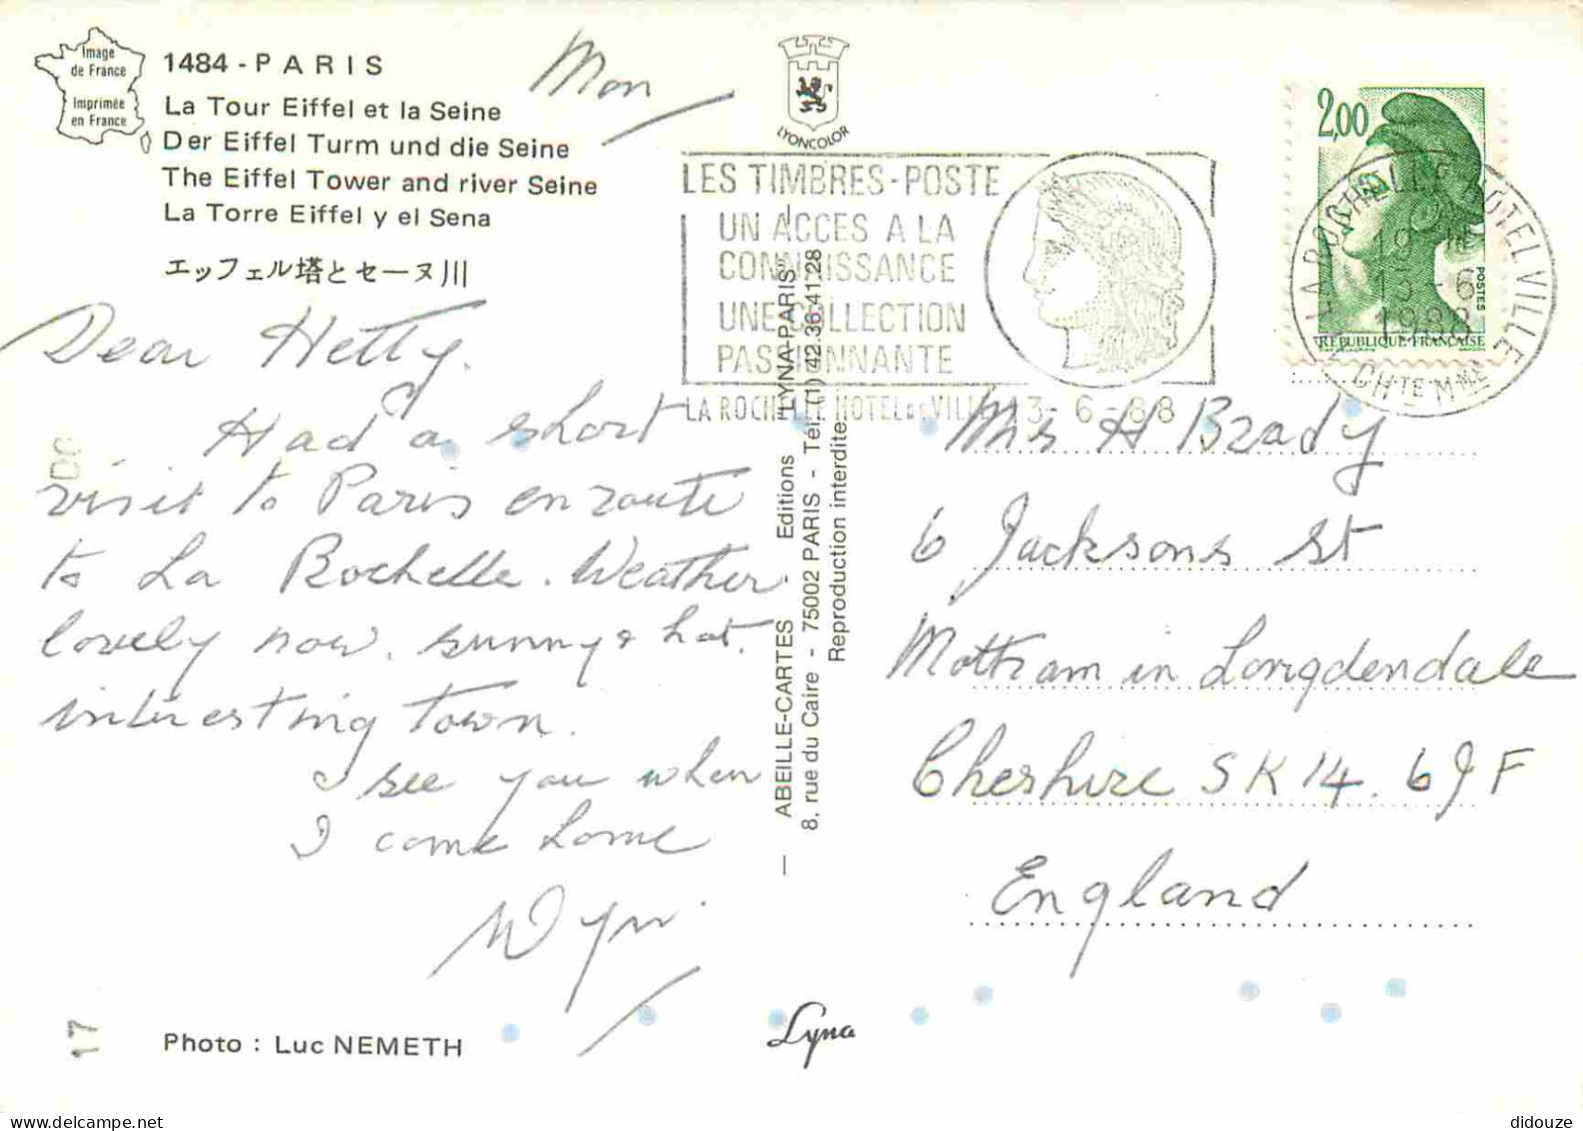 Image
de France
Imprimée
en France
1484 - PARIS
La Tour Eiffel et la Seine
Der Eiffel Turm und die Seine
The Eiffel Tower and river Seine
La Torre Eiffel y el Sena
エッフェル塔とセーヌ川
Mon
Dear Hetty.
Had a short
visit to Paris en route
to La Rochelle. Weather
lovely now. sunny & hot.
interesting town.
I see you when
I come home
Wyn.
17
Photo : Luc NEMETH
LYONCOLOR
LES TIMBRES-POSTE
UN ACCES A LA
CONNAISSANCE
UNE COLLECTION
PASSIONNANTE
LA ROCHELLE HOTEL DE VILLE 13-6-88
— ABEILLE-CARTES - Editions "LYNA-PARIS" —
8, rue du Caire - 75002 PARIS - Tél. (1) 42.36.41.28
Reproduction interdite
Lyna
2,00
POSTES
REPUBLIQUE FRANÇAISE
LA ROCHELLE HOTEL VILLE
19 H
13-6
1988
CHTE MME
Mrs H Brady
6 Jacksons St
Mottram in Longdendale
Cheshire SK14. 6JF
England
didouze